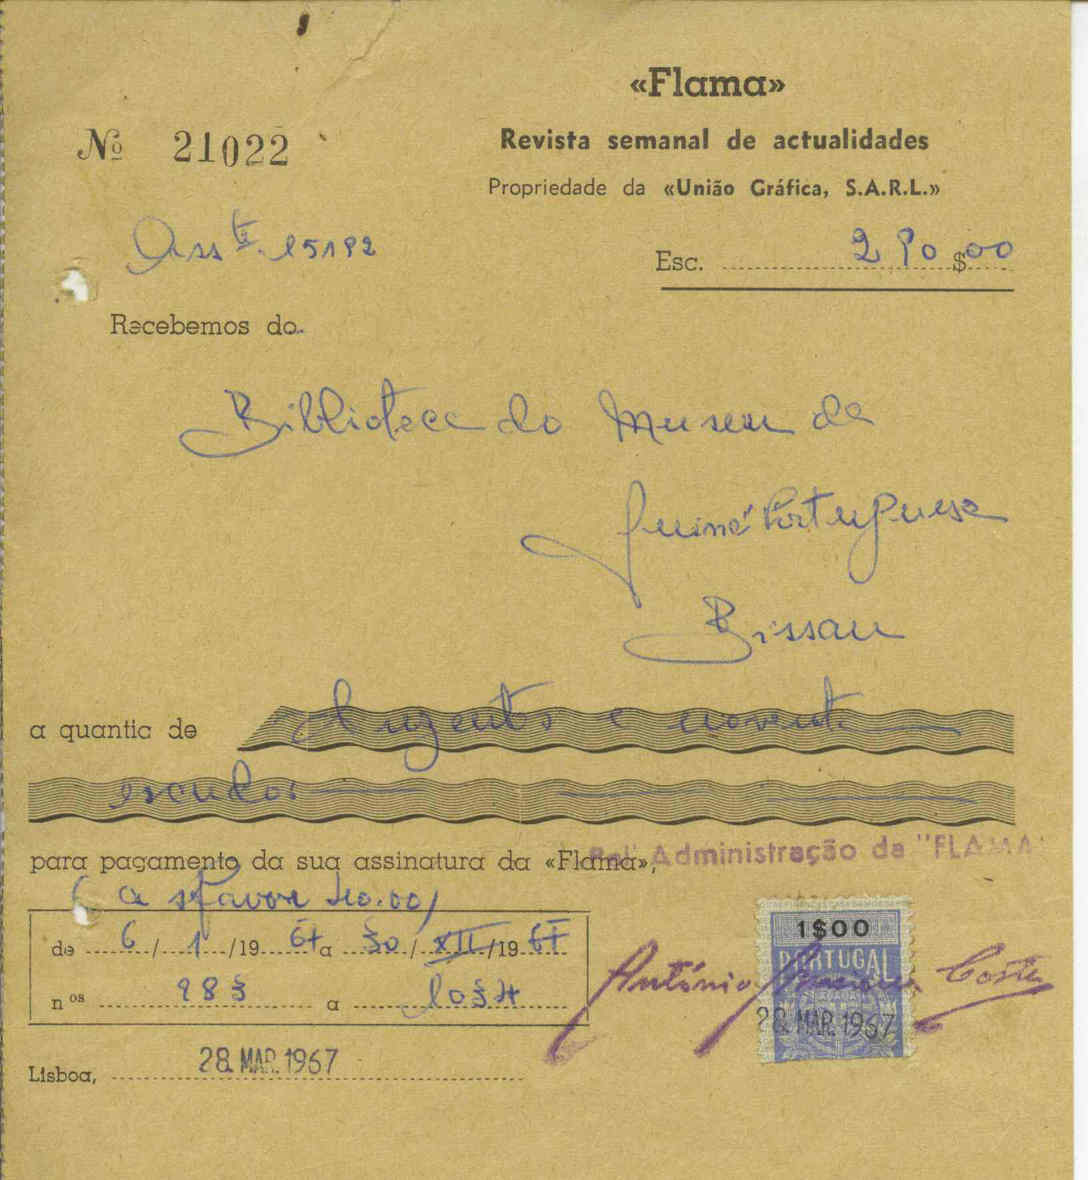 «Flama»
Nº 21022
Revista semanal de actualidades
Propriedade da «União Gráfica, S.A.R.L.»
Ass te. 15192
Esc. 290$00
Recebemos do
Biblioteca do Museu da
Guiné Portuguesa
Bissau
a quantia de duzentos e noventa
escudos
para pagamento da sua assinatura da «Flama»,
Pel' Administração da "FLAMA"
(a s/favor 40.00)
1$00
PORTUGAL
de 6/1/1967 a 30/XII/1967
António Costa
nos 983 a 1034
28. MAR. 1967
Lisboa, 28. MAR. 1967